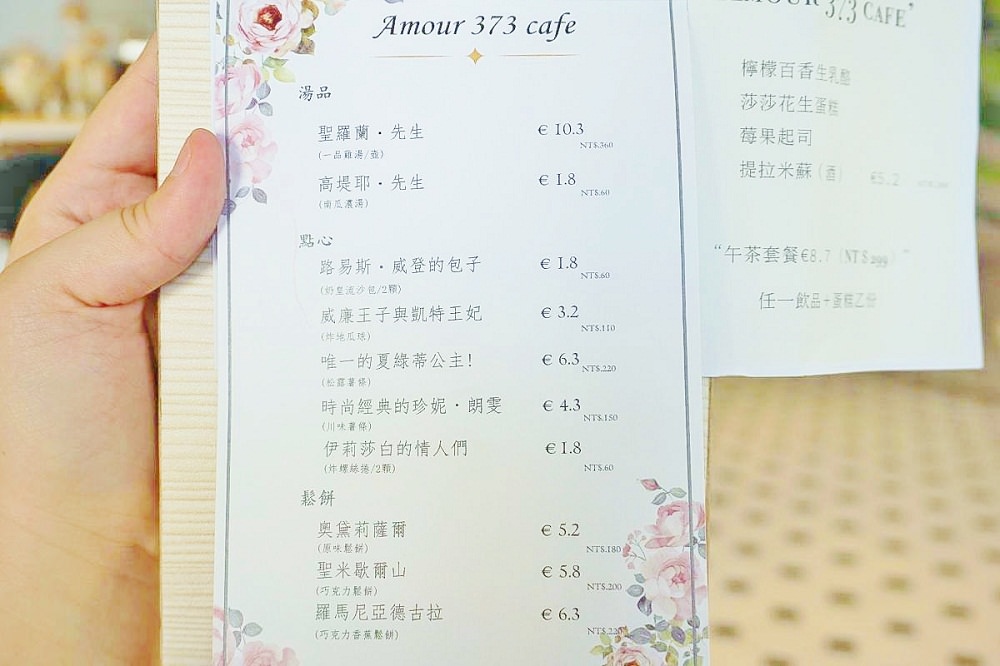 Amour 373 cafe
湯品
聖羅蘭·先生 € 10.3
(一品雞湯/壺) NT$.360
高堤耶·先生 € 1.8
(南瓜濃湯) NT$.60
點心
路易斯·威登的包子 € 1.8
(奶皇流沙包/2顆) NT$.60
威廉王子與凱特王妃 € 3.2
(炸地瓜球) NT$.110
唯一的夏綠蒂公主! € 6.3
(松露薯條) NT$.220
時尚經典的珍妮·朗雯 € 4.3
(川味薯條) NT$.150
伊莉莎白的情人們 € 1.8
(炸螺絲捲/2顆) NT$.60
鬆餅
奧黛莉薩爾 € 5.2
(原味鬆餅) NT$.180
聖米歇爾山 € 5.8
(巧克力鬆餅) NT$.200
羅馬尼亞德古拉 € 6.3
(巧克力香蕉鬆餅) NT$.220
AMOUR 373 CAFE’
檸檬百香生乳酪
莎莎花生蛋糕
莓果起司
提拉米蘇（酒） €5.2
“午茶套餐€8.7（NT$299）”
任一飲品+蛋糕乙份